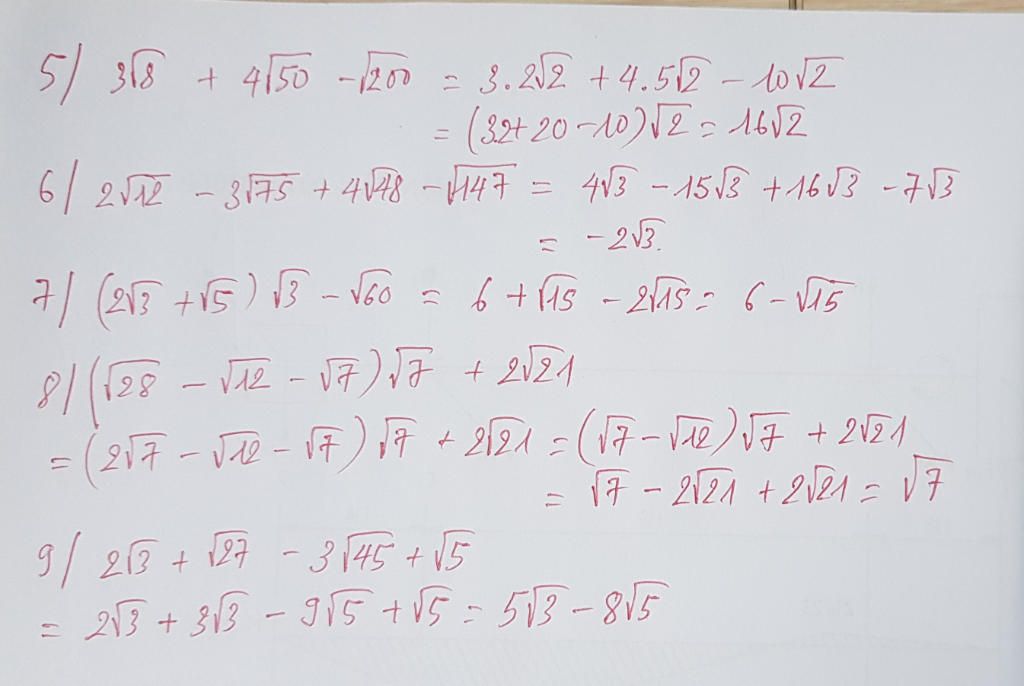 5/ 3√8 + 4√50 - √200 = 3.2√2 + 4.5√2 - 10√2
= (3.2+20-10)√2 = 16√2
6/ 2√12 - 3√75 + 4√48 - √147 = 4√3 - 15√3 + 16√3 - 7√3
= -2√3.
7/ (2√3 + √5)√3 - √60 = 6 + √15 - 2√15 = 6 - √15
8/ (√28 - √12 - √7)√7 + 2√21
= (2√7 - √12 - √7)√7 + 2√21 = (√7 - √12)√7 + 2√21
= √7 - 2√21 + 2√21 = √7
9/ 2√3 + √27 - 3√45 + √5
= 2√3 + 3√3 - 9√5 + √5 = 5√3 - 8√5